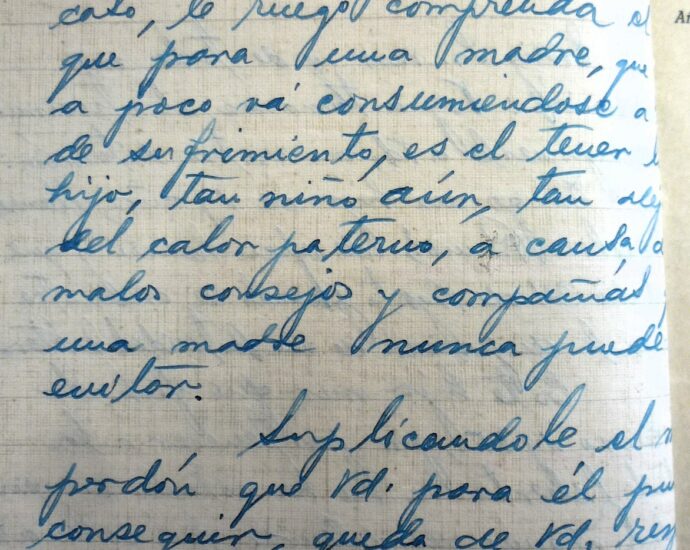 caso, le ruego comprenda el
que para una madre, que
a poco vá consumiendose a
de sufrimiento, es el tener
hijo, tan niño aún, tan
del calor paterno, a causa
malos consejos y compañías
una madre nunca puede
evitar.
Suplicandole el
perdón que Vd. para él
conseguir, queda de Vd.